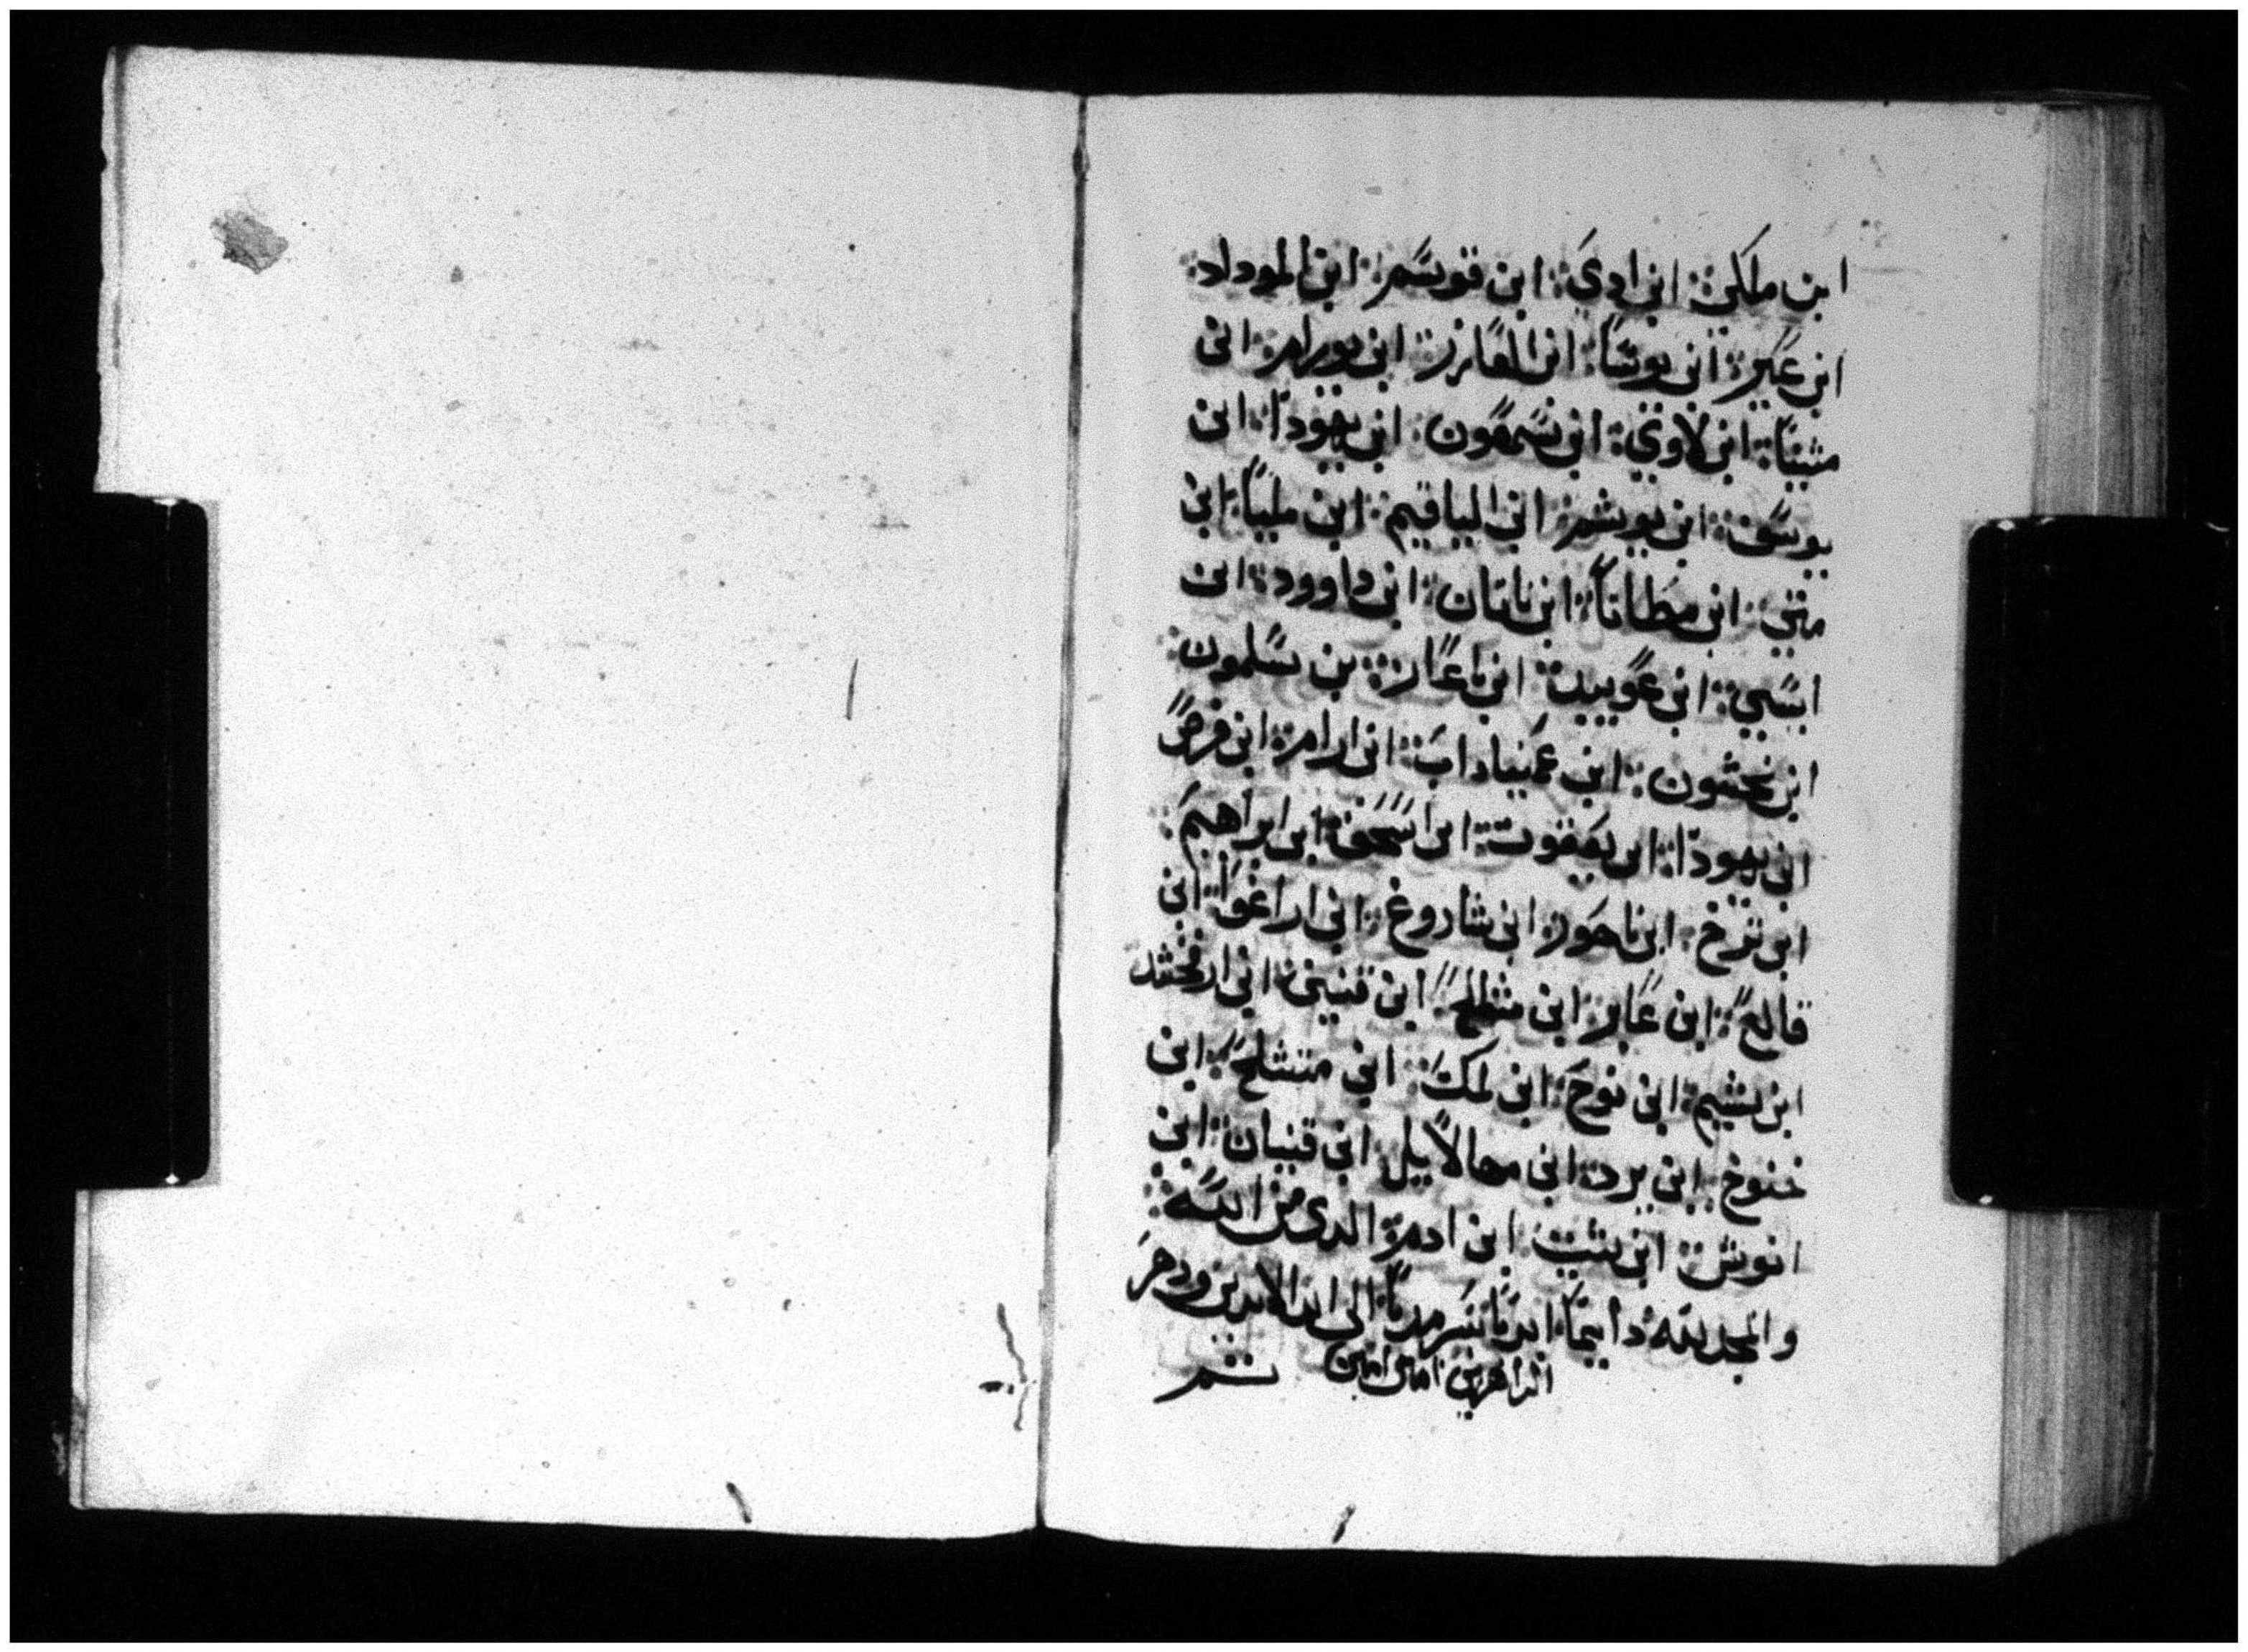 ابن ملكي: ابن ادي: ابن قوسم: ابن الموداد:
ابن عير: ابن يوسا: ابن العازر: ابن يورام: ابن
متيتا: ابن لاوي: ابن سمعون: ابن يهودا: ابن
يوسف: ابن يوشم: ابن الياقيم: ابن مليا: ابن
متي: ابن مطاتا: ابن ناتان: ابن داوود: ابن
ايسي: ابن عوبيد: ابن باعاز: بن سلمون:
ابن نحشون: ابن عميناداب: ابن ارام: ابن فرص
ابن يهودا: ابن يعقوب: ابن اسحق: ابن ابراهيم:
ابن ترخ: ابن ناحور: ابن شاروغ: ابن اراغوا: ابن
فالع: ابن عابر: ابن شلح: ابن قينين: ابن ارفخشد
ابن شيم: ابن نوح: ابن لمك: ابن متشلح: ابن
خنوخ: ابن يرد: ابن مهالاييل: ابن قينان: ابن
انوش: ابن شيت: ابن ادم: الدي من الله:
والمجد لله دايما ابدا سرمدا الى ابد الابدين ودهر
الداهرين امين امين تم